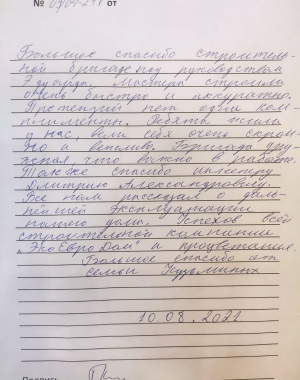 № 09/04-211 от
Большое спасибо строитель-
ной бригаде под руководством
Эдуарда. Мастера строили
очень быстро и аккуратно.
Претензий нет одни ком-
плименты. Ребята жили
у нас, вели себя очень скром
но и вежливо. Бригада дру-
жная, что важно в работе.
Также спасибо инженеру
Дмитрию Александровичу.
Все нам рассказал о даль-
нейшей эксплуатации
нашего дома. Успехов всей
строительной компании
"ЭкоЕвроДом" и процветания.
Большое спасибо от
семьи Кузьминых
10.08.2021
Подпись